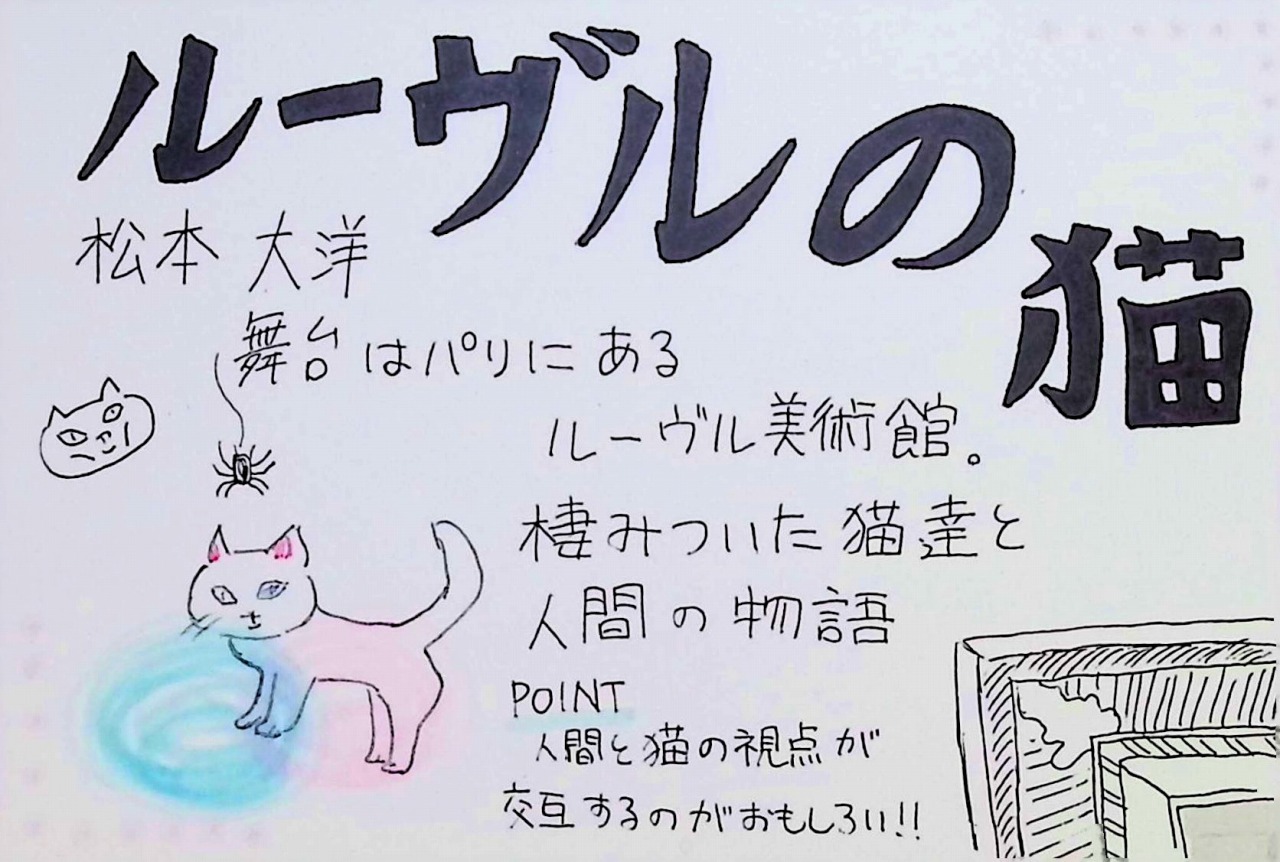 ルーヴルの猫
松本 大洋
舞台はパリにある
ルーヴル美術館。
棲みついた猫達と
人間の物語
POINT
人間と猫の視点が
交互するのがおもしろい!!